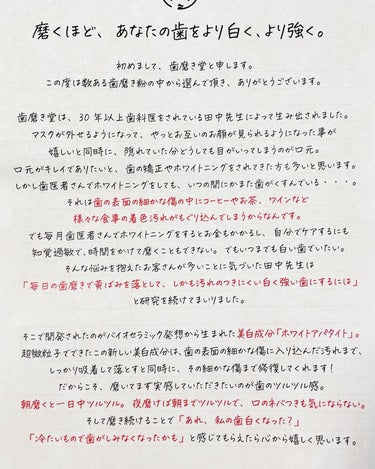 磨くほど、あなたの歯をより白く、より強く。
初めまして、歯磨き堂と申します。
この度は数ある歯磨き粉の中から選んで頂き、ありがとうございます。
歯磨き堂は、30年以上歯科医をされている田中先生によって生み出されました。
マスクが外せるようになって、やっとお互いのお顔が見られるようになった事が
嬉しいと同時に、隠れていた分どうしても目がいってしまうのが口元。
口元がキレイでありたいと、歯の矯正やホワイトニングをされてきた方も多いと思います。
しかし歯医者さんでホワイトニングをしても、いつの間にかまた歯がくすんでいる・・・。
それは歯の表面の細かな傷の中にコーヒーやお茶、ワインなど
様々な食事の着色汚れがもぐり込んでしまうからなんです。
でも毎月歯医者さんでホワイトニングをするとお金もかかるし、自分でケアするにも
知覚過敏で、時間をかけて磨くこともできない。でもいつまでも白い歯でいたい。
そんな悩みを抱えたお客さんが多いことに気づいた田中先生は
「毎日の歯磨きで黄ばみを落として、しかも汚れのつきにくい白く強い歯にするには」
と研究を続けてまいりました。
そこで開発されたのがバイオセラミック発想から生まれた美白成分「ホワイトアパタイト」。
超微粒子でできたこの新しい美白成分は、歯の表面の細かな傷に入り込んだ汚れまで、
しっかり吸着して落とすと同時に、その細かな傷まで修復してくれます!
だからこそ、磨いてまず実感していただきたいのが歯のツルツル感。
朝磨くと一日中ツルツル。夜磨けば朝までツルツルで、口のネバつきも気にならない。
そして磨き続けることで「あれ、私の歯白くなった?」
「冷たいもので歯がしみなくなったかも」と感じてもらえたら心から嬉しく思います。